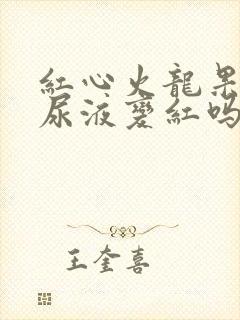 紅心火龍果
尿液變紅嗎
王奎喜